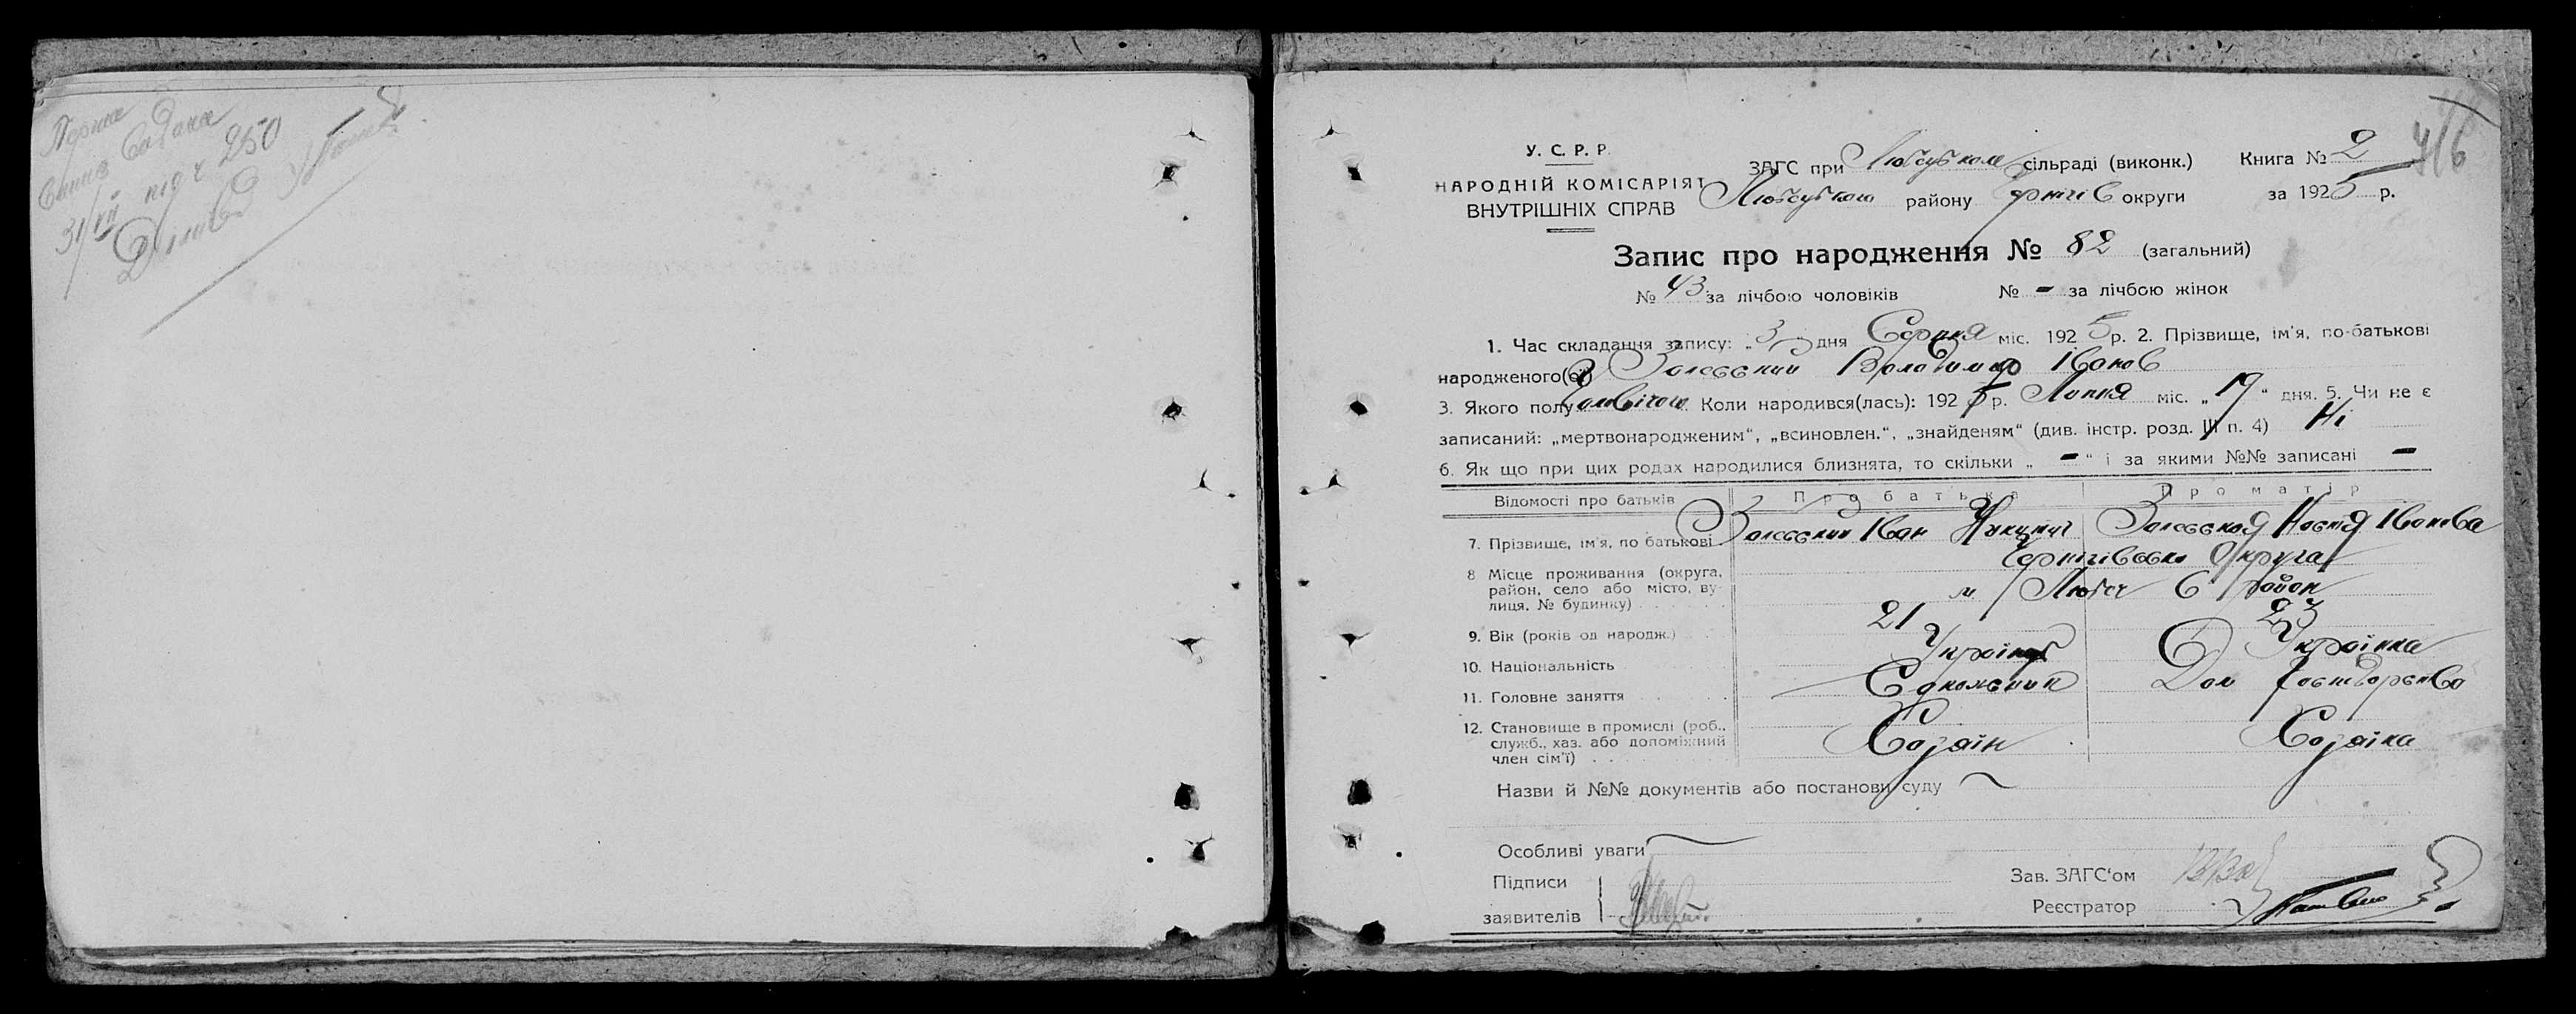 Перша
випис видана
31/XII під ч 250
У. С. Р. Р.
НАРОДНІЙ КОМІСАРІЯТ
ВНУТРІШНІХ СПРАВ
ЗАГС при Любецьком сільраді (виконк.) Книга № 2
Любецького району Чернігів округи за 1925 р.
Запис про народження № 82 (загальний)
№ 43 за лічбою чоловіків № - за лічбою жінок
1. Час складання запису: „3" дня Серпня міс. 1925 р. 2. Прізвище, ім'я, по-батькові
народженого(ої) Залєський Володимир Іванов
3. Якого полу Чоловічого. Коли народився(лась): 1925 р. Липня міс. „19" дня. 5. Чи не є
записаний: „мертвонародженим", „всиновлен.", „знайденям" (див. інстр. розд. III п. 4) Ні
6. Як що при цих родах народилися близнята, то скільки „-" і за якими №№ записані -
Відомості про батьків Про батька Про матір
7. Прізвище, ім'я, по батькові Залєський Іван Залєськая Настя Іванова
Чернігівська Округа
8 Місце проживання (округа, район, село або місто, вулиця, № будинку) м Любеч район
9. Вік (років од народж.) 21 23
10. Національність Українець Українка
11. Головне заняття Дом Господарство
12. Становище в промислі (роб., служб., хаз. або допоміжний член сім'ї) Хозяїн Хозяїка
Назви й №№ документів або постанови суду
Особливі уваги
Підписи
заявителів
Зав. ЗАГС'ом
Реєстратор